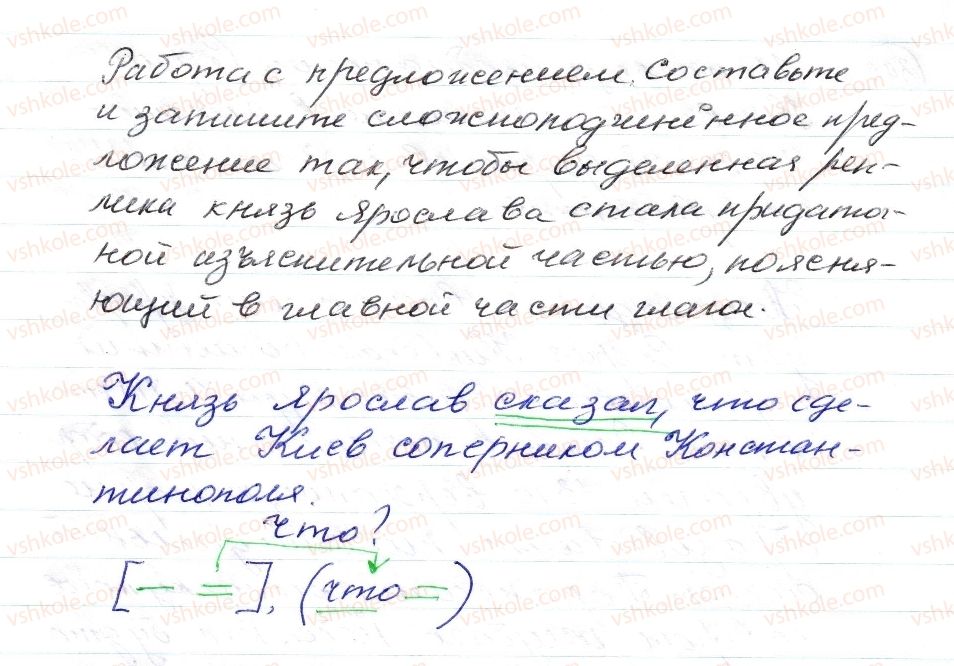 Работа с предложением. Составьте
и запишите сложноподчинённое пред-
ложение так, чтобы выделенная реп-
лика князь Ярослава стала придаточ-
ной изъяснительной частью, поясня-
ющий в главной части глагол.
Князь Ярослав сказал, что сде-
лает Киев соперником Констан-
тинополя.
что?
[— =], (что =)
vshkole.com